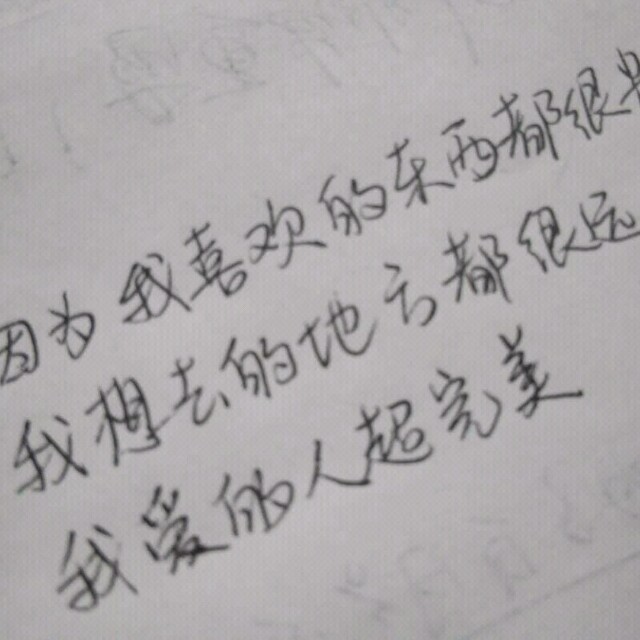 因为我喜欢的东西都很
我想去的地方都很远
我爱的人超完美